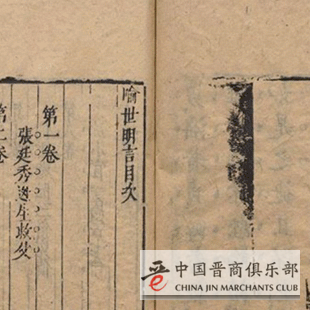 喻世明言目次
第一卷
張廷秀逃生救父
第二卷
中国晋商俱乐部
CHINA JIN MARCHANTS CLUB